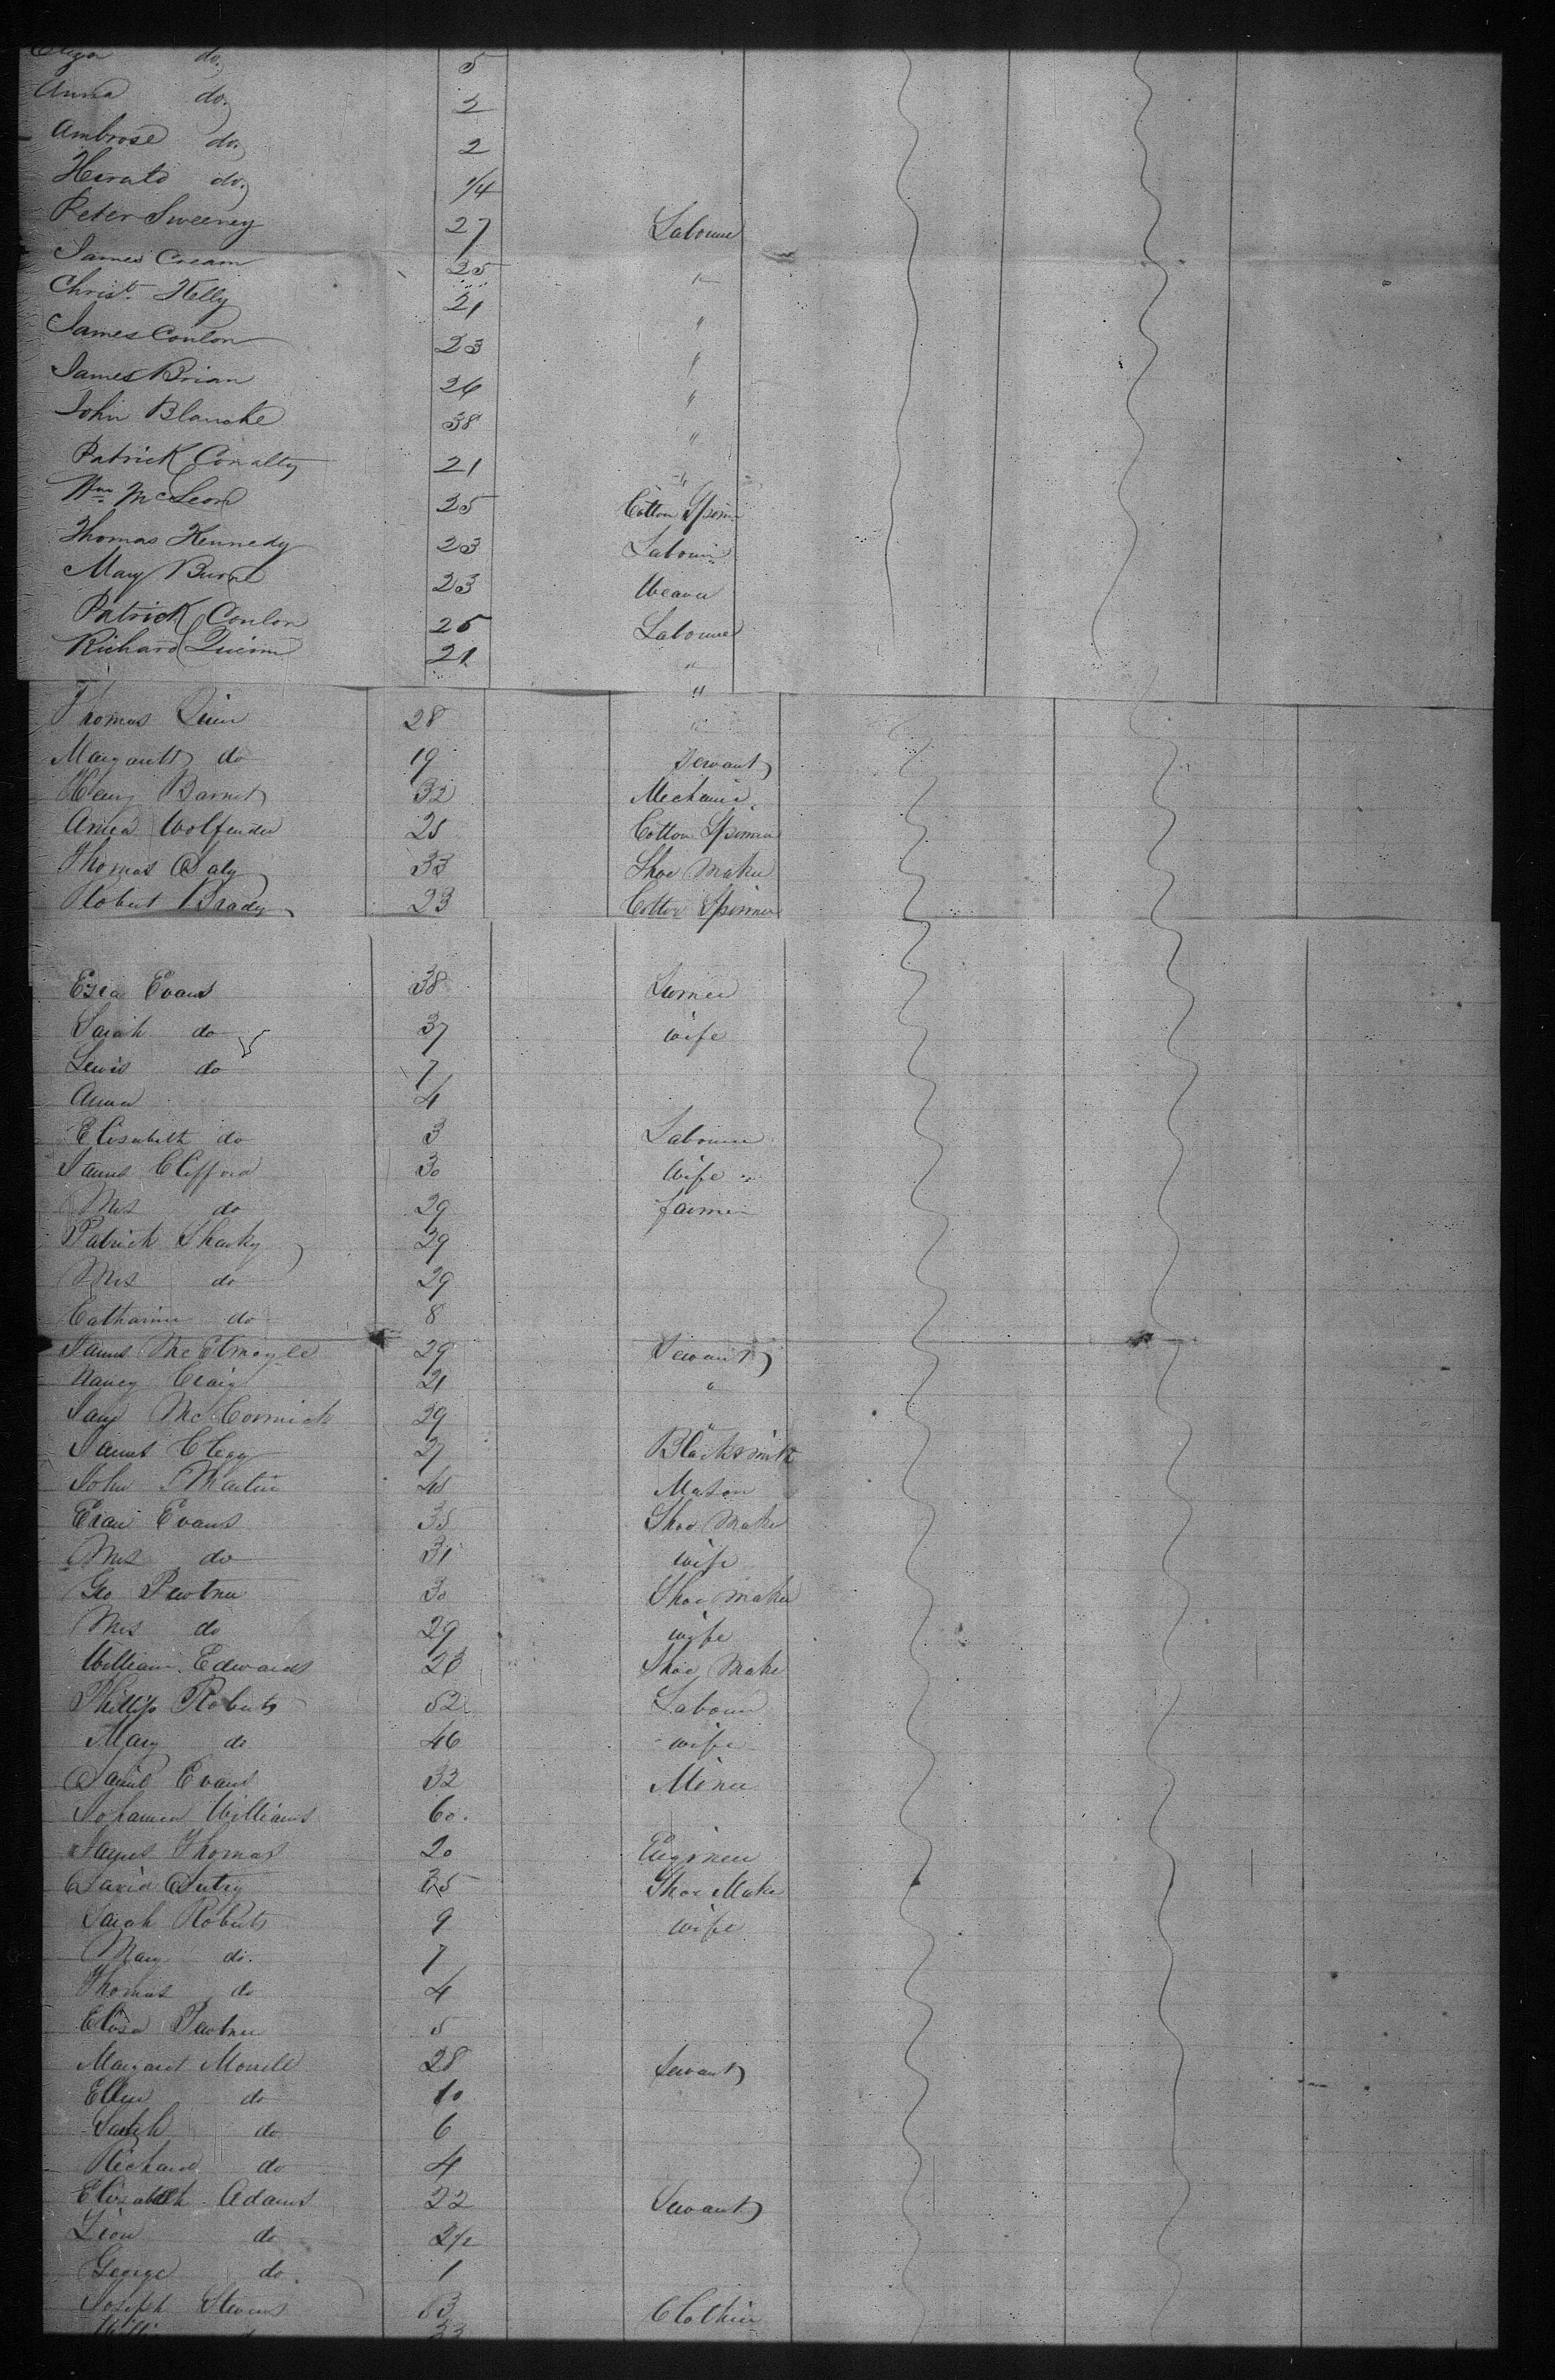 Eliza do. 5
Anna do. 2
Ambrose do. 2
do. 1/4
Peter Sweeney 27 Labourer
James Cream 25 "
Christ. Kelly 21 "
James Conlon 23 "
James Brian 26 "
John Blanche 38 "
Patrick Conalty 21 "
Wm. McLeod 25 Cotton Spinner
Thomas Kennedy 23 Labourer
Mary Burne 23 Weaver
Patrick Conlon 25 Labourer
Richard Quinn 21 "
"
Thomas Quin 28 "
Margarett do 19 Servant
Henry Barnet 32 Mechanic
Wolfender 25 Cotton Spinner
Thomas Daly 33 Shoe Maker
Robert Brady 23 Cotton Spinner
Evans 38
Sarah do 37 wife
Lewis do 7
Anna 4
Elisabeth do 3 Labourer
James Clifford 30 Wife
Mrs do 29 farmer
Patrick Sharky 29
Mrs do 29
Catharine do 8
James McElmoyle 29 Servant
Nancy Craig 21 "
McCormick 29 "
James Clegg 27 Blacksmith
John Martin 45 Mason
Evan Evans 35 Shoe Maker
Mrs do 31 wife
Geo Pewtner 30 Shoe maker
Mrs do 29 wife
William Edwards 23 Shoe Maker
Phillip Roberts 52 Labourer
Mary do 46 wife
Daniel Evans 32 Miner
Johanna Williams 60.
James Thomas 20 Engineer
David 35 Shoe Maker
Sarah Roberts 9 wife
Mary do. 7
Thomas do 4
Elisa Pewtner 5
Margaret 28 Servant
Ellen do 10
do 6
Richard do 4
Elizabeth Adams 22 Servant
do 2 1/2
George do. 1
Joseph Stevens 33 Clothier
33